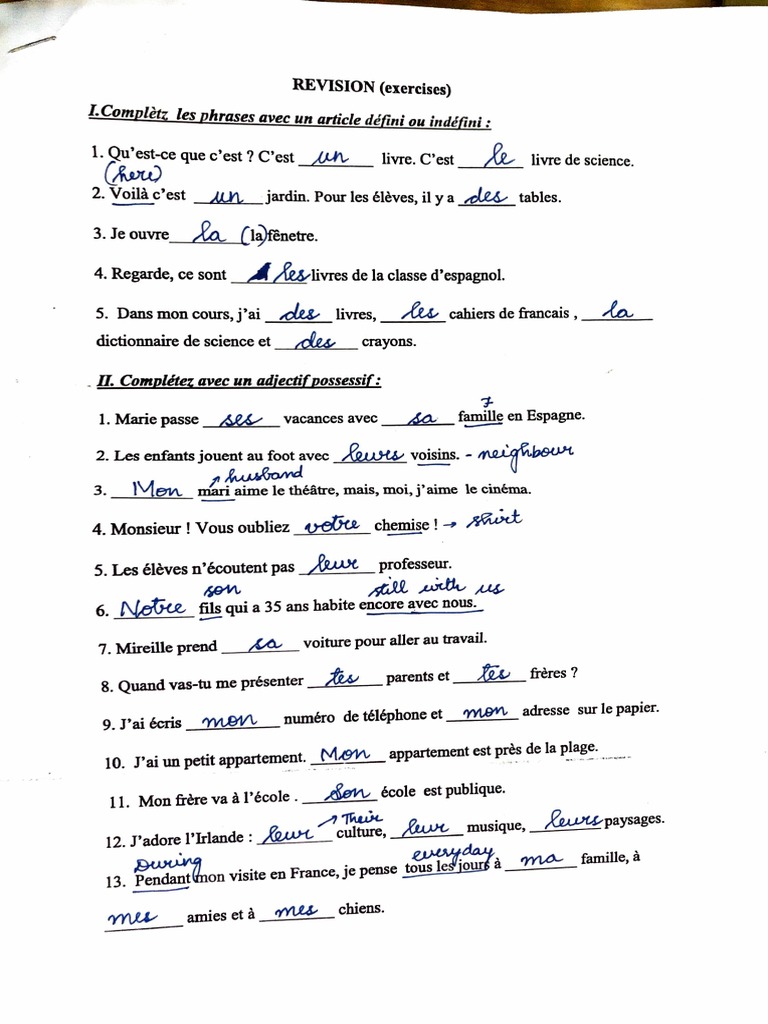 REVISION (exercises)
I.Complètz les phrases avec un article défini ou indéfini :
1. Qu'est-ce que c'est ? C'est un livre. C'est le livre de science.
(here)
2. Voilà c'est un jardin. Pour les élèves, il y a des tables.
3. Je ouvre la (la)fênetre.
4. Regarde, ce sont les livres de la classe d'espagnol.
5. Dans mon cours, j'ai des livres, les cahiers de francais , la
dictionnaire de science et des crayons.
II. Complétez avec un adjectif possessif :
1. Marie passe ses vacances avec sa famille en Espagne.
2. Les enfants jouent au foot avec leurs voisins. - neighbour
husband
3. Mon mari aime le théâtre, mais, moi, j'aime le cinéma.
4. Monsieur ! Vous oubliez votre chemise ! → shirt
5. Les élèves n'écoutent pas leur professeur.
son still with us
6. Notre fils qui a 35 ans habite encore avec nous.
7. Mireille prend sa voiture pour aller au travail.
8. Quand vas-tu me présenter tes parents et tes frères ?
9. J'ai écris mon numéro de téléphone et mon adresse sur le papier.
10. J'ai un petit appartement. Mon appartement est près de la plage.
11. Mon frère va à l'école . Son école est publique.
Their
12. J'adore l'Irlande : leur culture, leur musique, leurs paysages.
During everyday
13. Pendant mon visite en France, je pense tous les jours à ma famille, à
mes amies et à mes chiens.